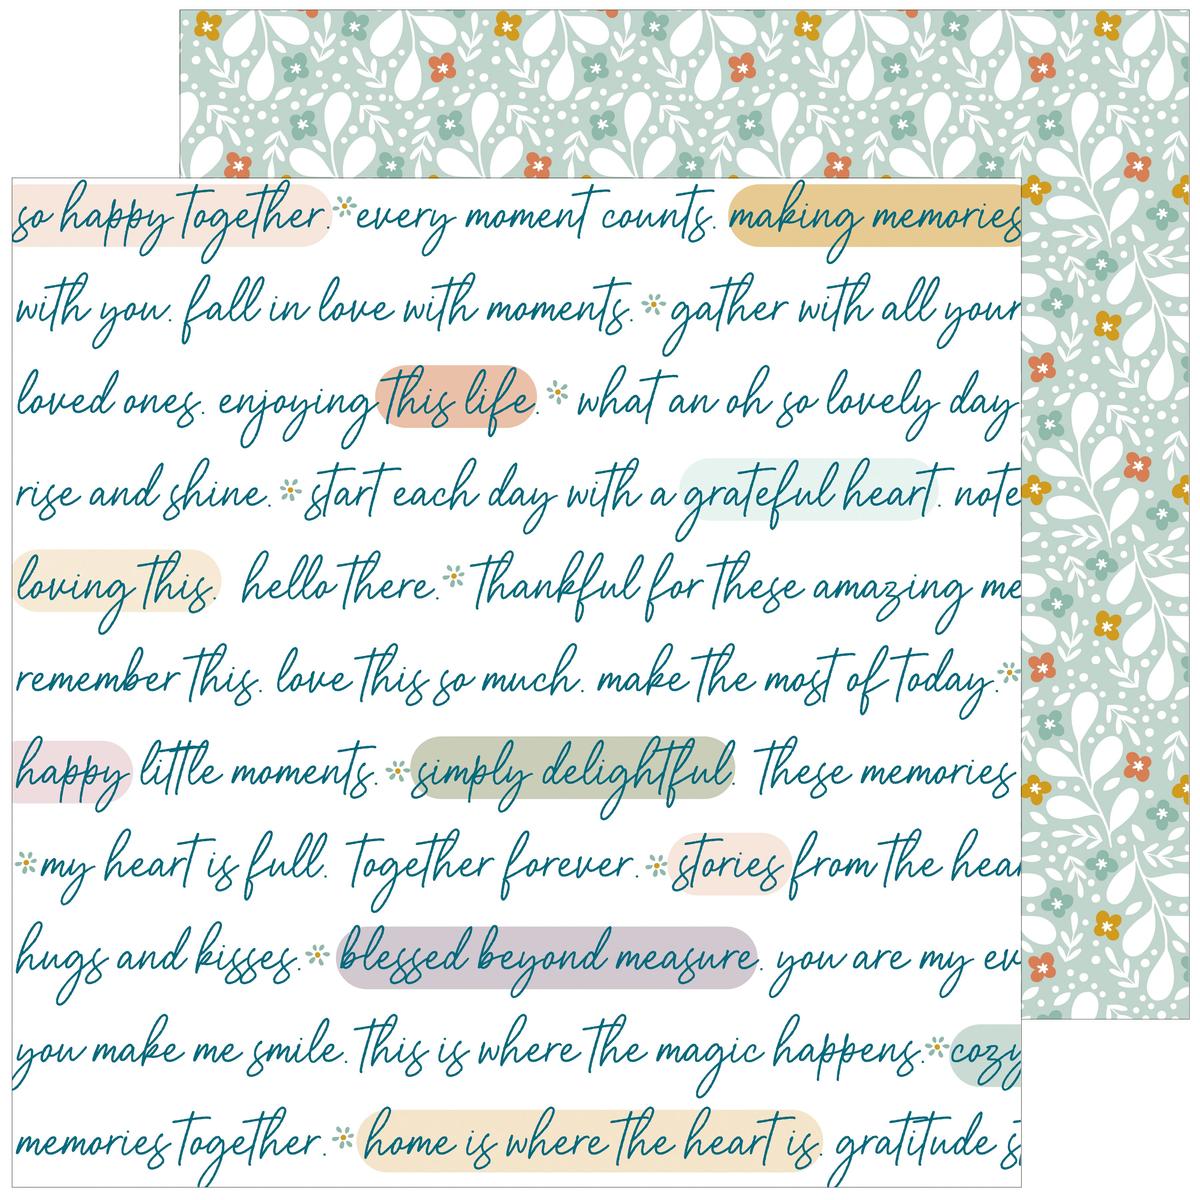 so happy together. every moment counts. making memories
with you. fall in love with moments. gather with all your
loved ones. enjoying this life. what an oh so lovely day
rise and shine. start each day with a grateful heart. note
loving this. hello there. Thankful for these amazing me
remember this. love this so much. make the most of today.
happy little moments. simply delightful. These memories
my heart is full. Together forever. stories from the hear
hugs and kisses. blessed beyond measure. you are my ev
you make me smile. This is where the magic happens. cozy
memories together. home is where the heart is. gratitude s